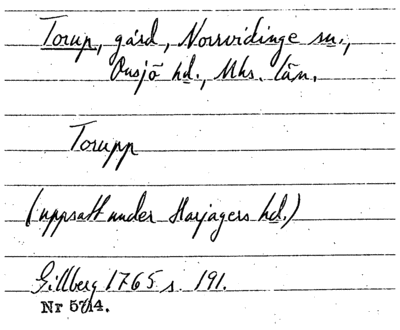 Torup, gård, Norrvidinge sn.,
Onsjö hd., Mhs. län.
Torupp
(uppsatt under Harjagers hd.)
Gillberg 1765 s. 191.
Nr 5714.